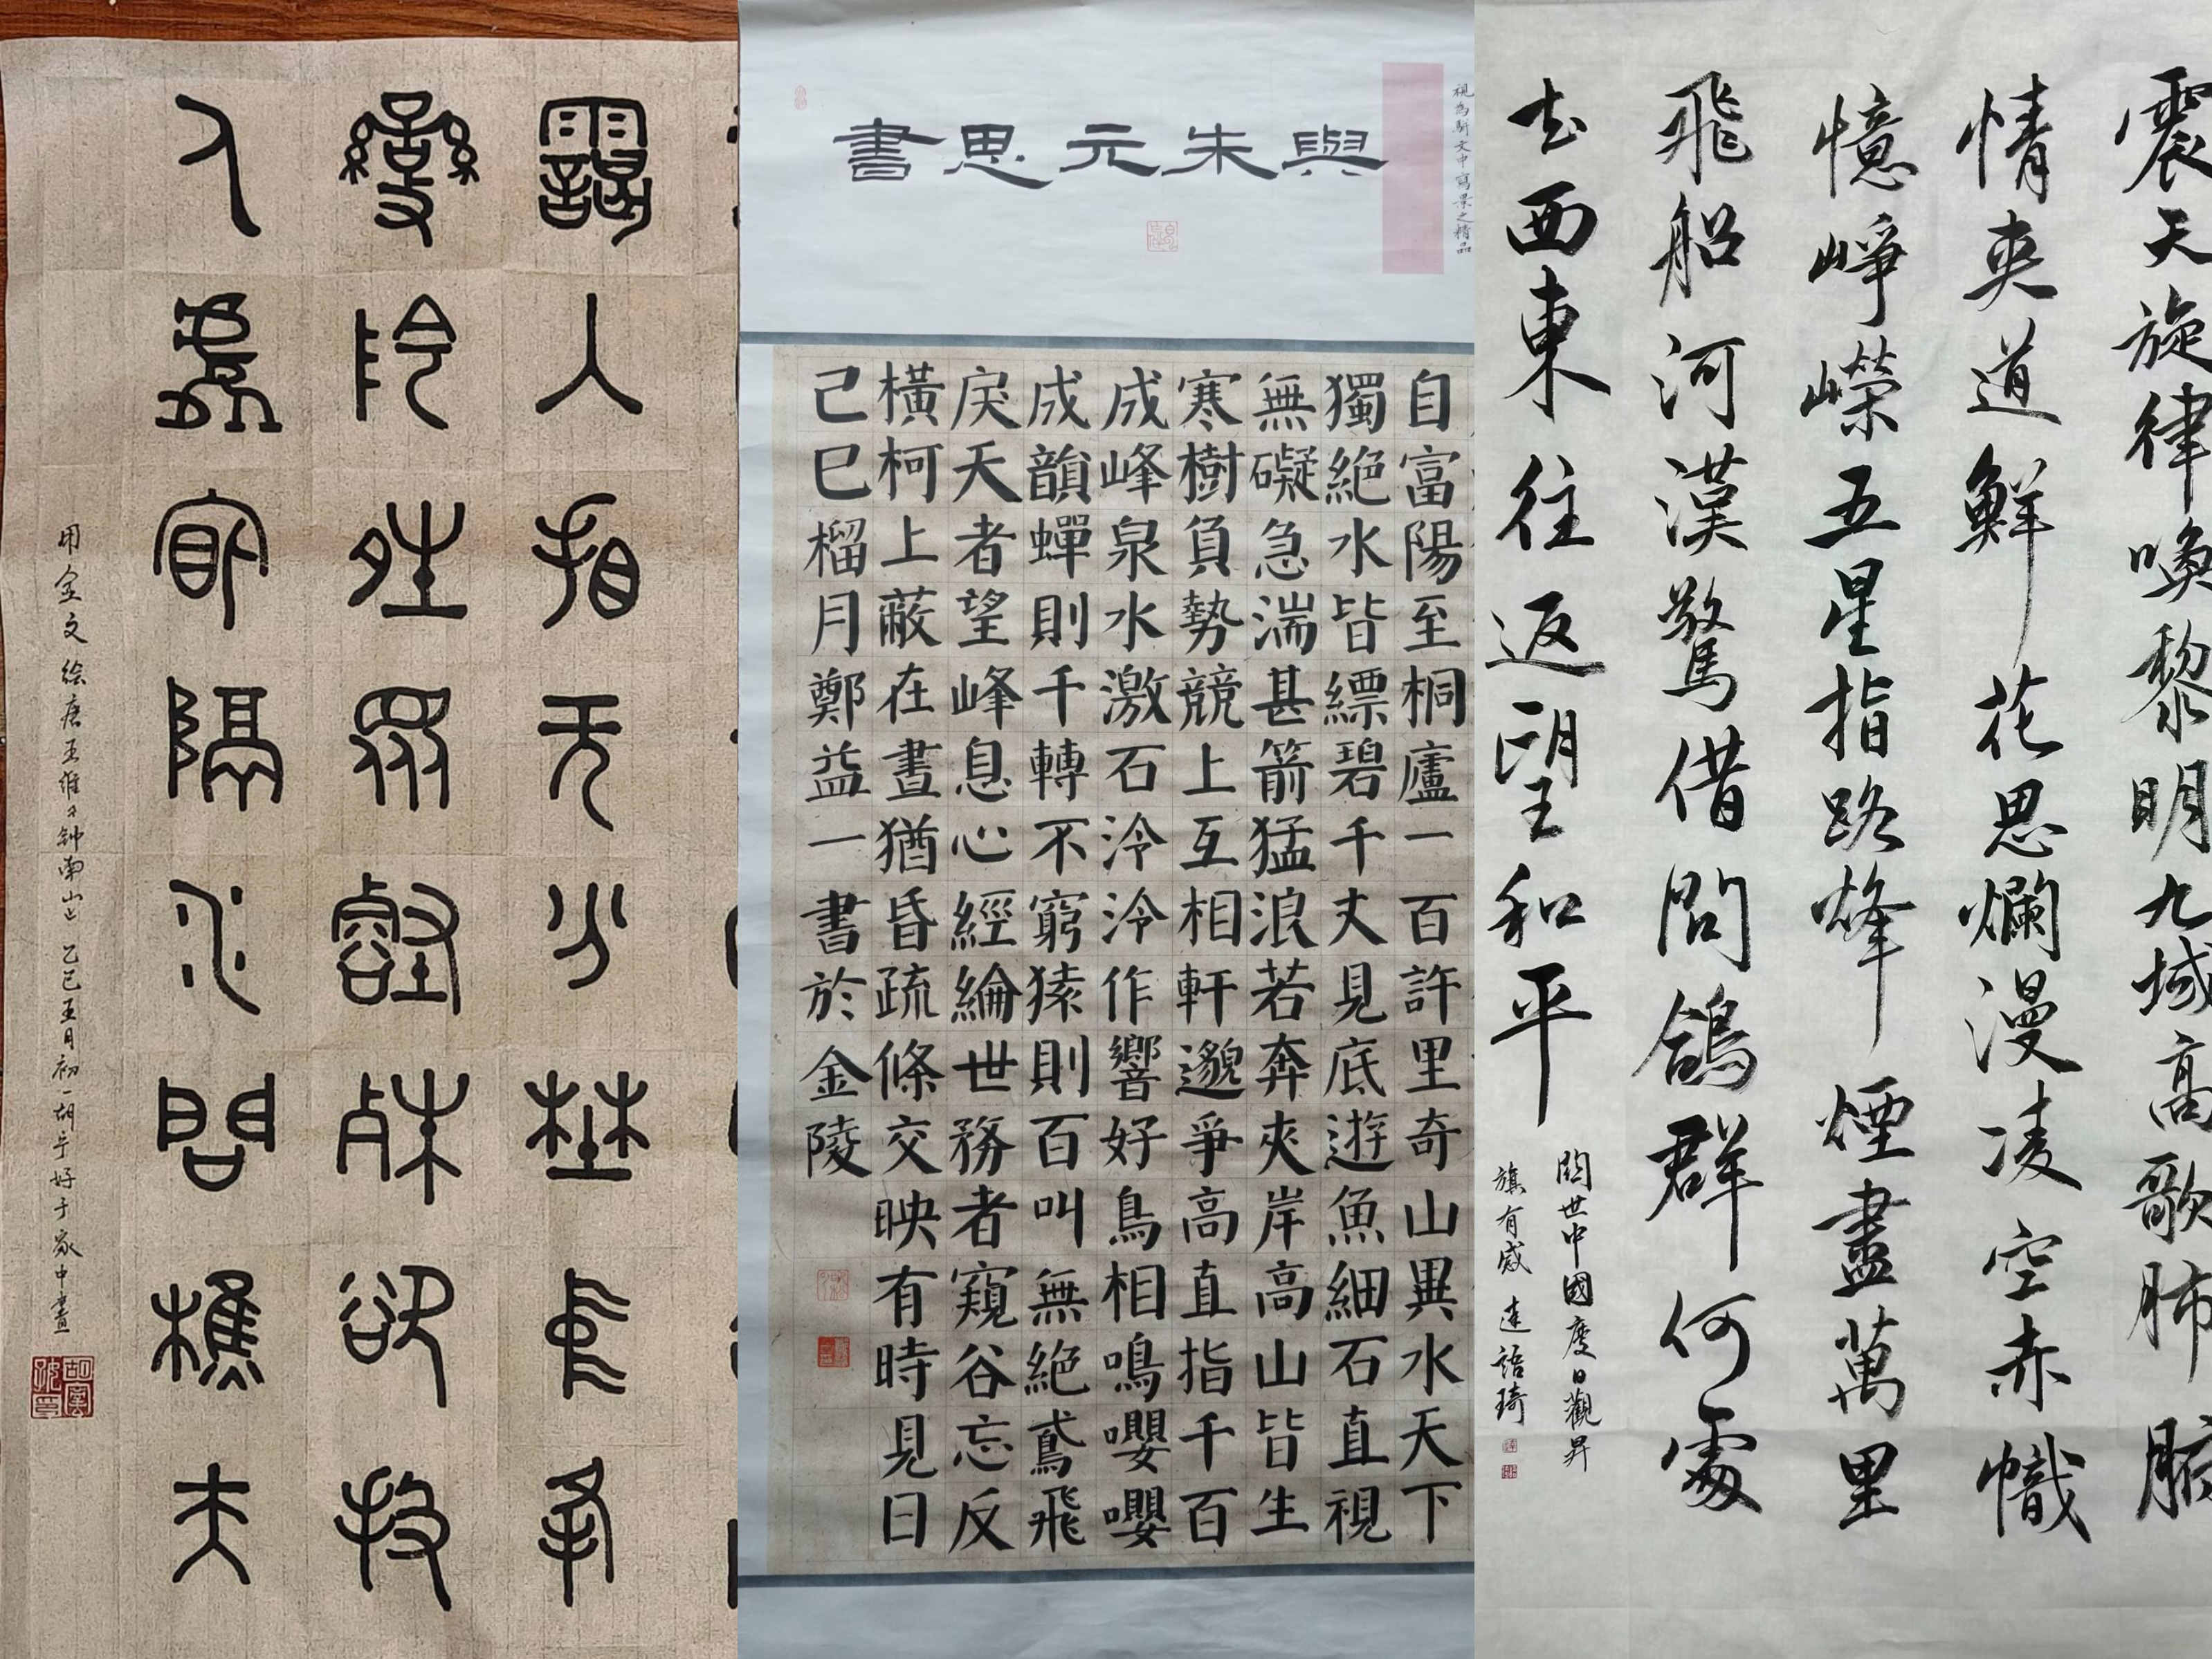 靄入看无分埜中峯
變陰晴眾壑殊欲投
人處宿隔水問樵夫
用金文绘唐王维之钟南山也 乙巳五月初一胡 好于家中畫
視為駢文中寫景之精品
與朱元思書
自富陽至桐廬一百許里奇山異水天下
獨絕水皆縹碧千丈見底遊魚細石直視
無礙急湍甚箭猛浪若奔夾岸高山皆生
寒樹負勢競上互相軒邈爭高直指千百
成峰泉水激石泠泠作響好鳥相鳴嚶嚶
成韻蟬則千轉不窮猿則百叫無絕鳶飛
戾天者望峰息心經綸世務者窺谷忘反
橫柯上蔽在晝猶昏疏條交映有時見日
己巳榴月鄭益一書於金陵
震天旋律喚黎明九域高歌肺腑
情夾道鮮花思爛漫凌空赤幟
憶崢嶸五星指路烽煙盡萬里
飛船河漢驚借問鴿群何處
去西東往返望和平
閱世中國慶日觀昇
旗有感 連語琦